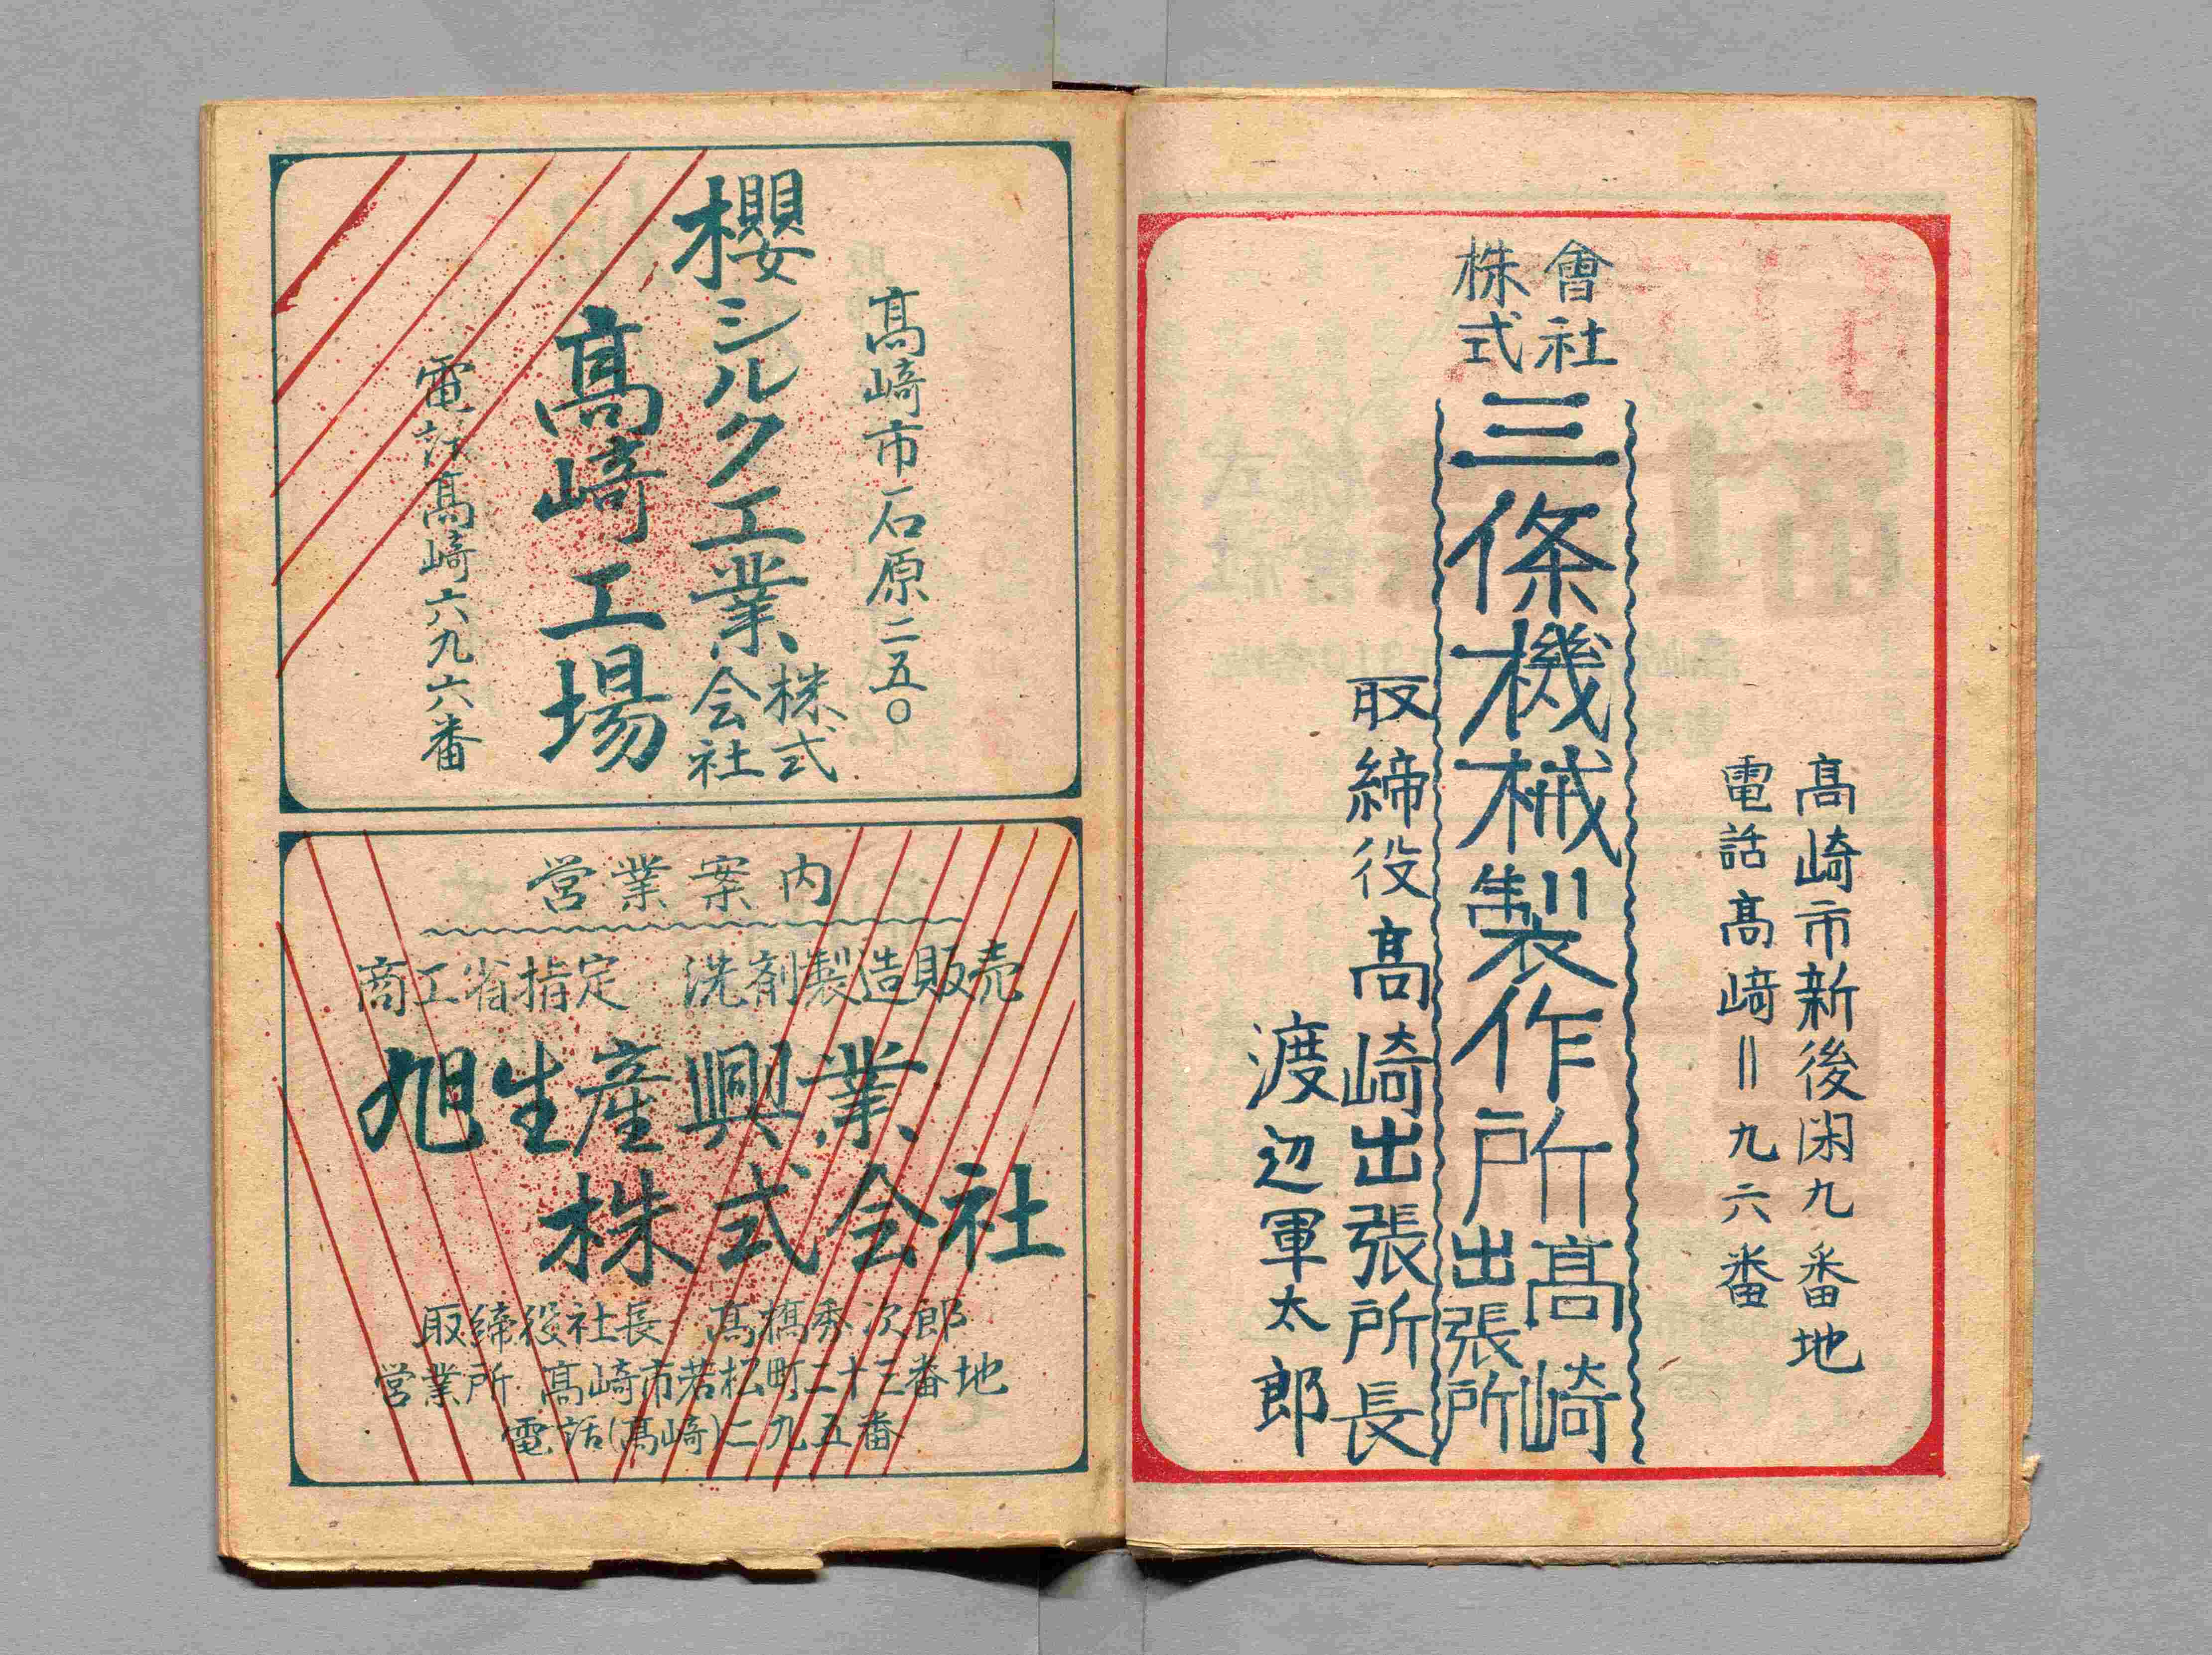 高崎市新後閑九番地
電話高崎＝九六番
株式會社
三條機械製作所高崎出張所
取締役高崎出張所長
渡辺軍太郎
高崎市石原二五〇
櫻シルク工業株式会社
高崎工場
電話高崎六九六番
営業案内
商工省指定 洗剤製造販売
旭生産興業
株式会社
取締役社長 高橋秀次郎
営業所 高崎市若松町二十三番地
電話(高崎)二九五番